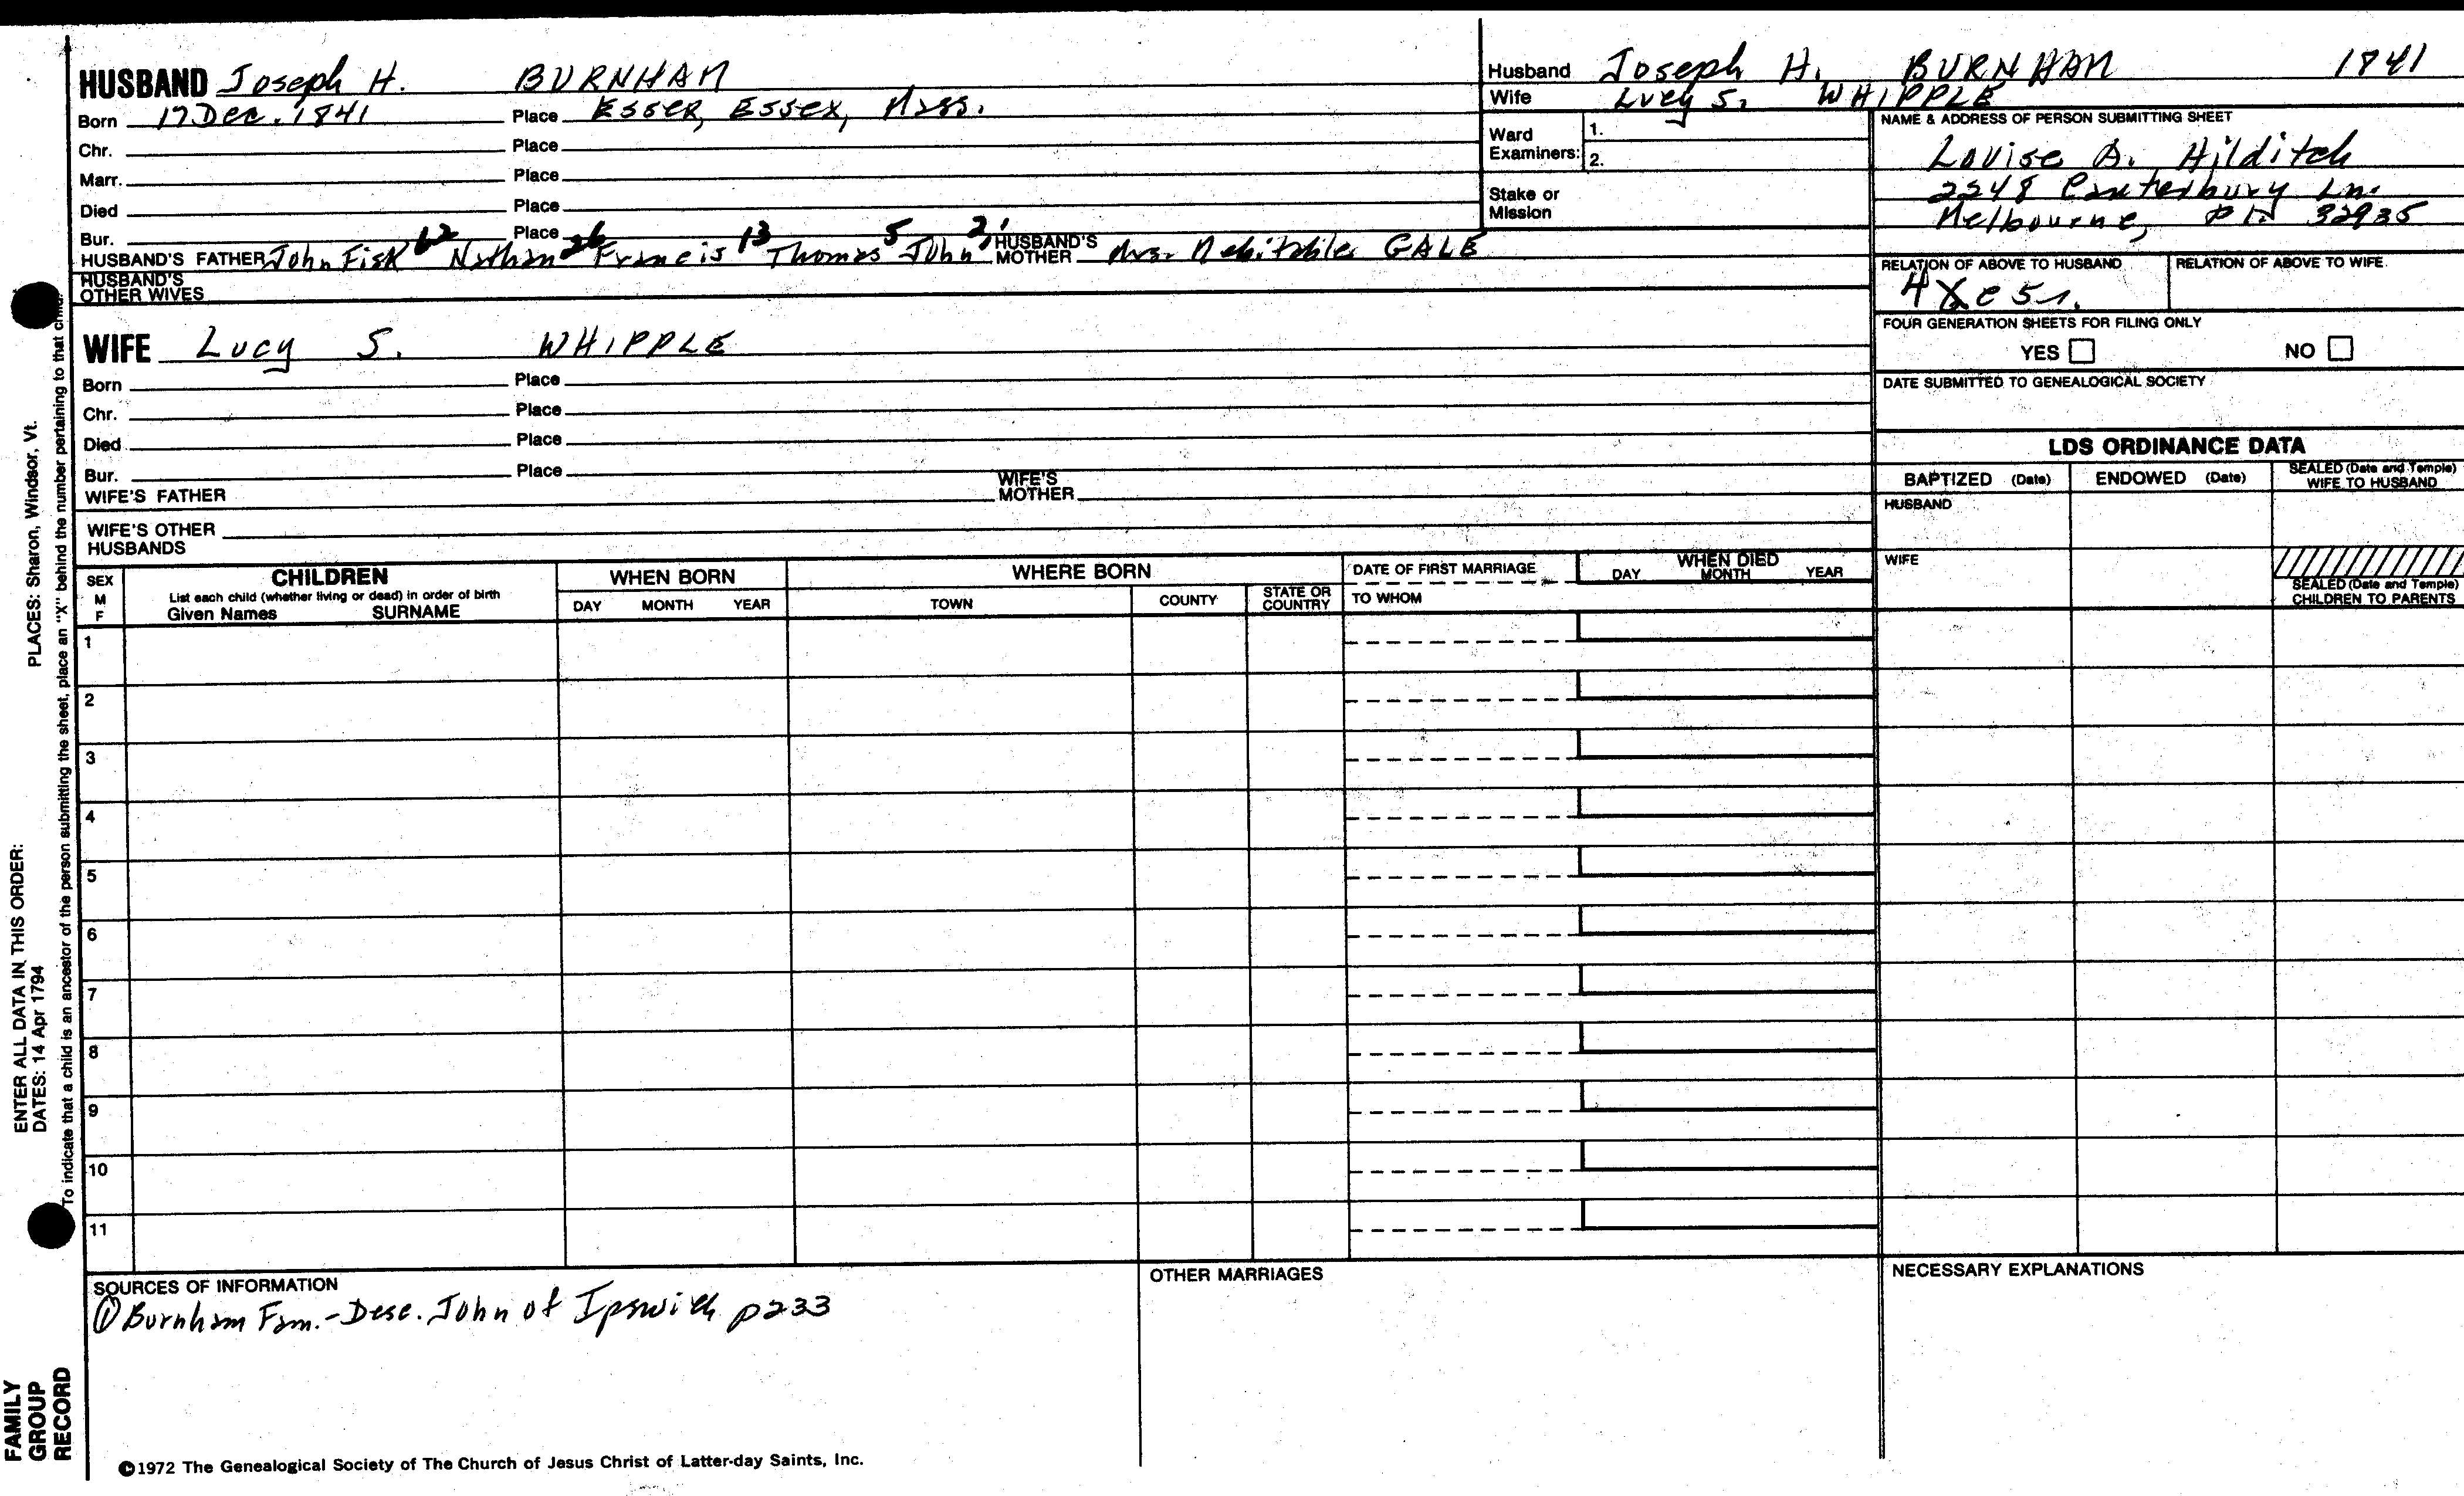 HUSBAND Joseph H. BURNHAM
Born 17 Dec. 1841 Place Essex, Essex, Mass.
Chr. Place
Marr. Place
Died Place
Bur. Place
HUSBAND'S FATHER John Fisk 62 Nathan 26 Francis 13 Thomas 5 John 2, 1 HUSBAND'S MOTHER Mrs. Mehitable GALE
HUSBAND'S OTHER WIVES
WIFE Lucy S. WHIPPLE
Born Place
Chr. Place
Died Place
Bur. Place
WIFE'S FATHER WIFE'S MOTHER
WIFE'S OTHER HUSBANDS
Husband Joseph H. BURNHAM 1841
Wife Lucy S. WHIPPLE
Ward Examiners: 1.
2.
Stake or Mission
NAME & ADDRESS OF PERSON SUBMITTING SHEET
Louise B. Hilditch
2248 Canterbury Ln.
Melbourne, 32935
RELATION OF ABOVE TO HUSBAND RELATION OF ABOVE TO WIFE
FOUR GENERATION SHEETS FOR FILING ONLY
YES NO
DATE SUBMITTED TO GENEALOGICAL SOCIETY
LDS ORDINANCE DATA
BAPTIZED (Date) ENDOWED (Date) SEALED (Date and Temple) WIFE TO HUSBAND
HUSBAND
WIFE
SEALED (Date and Temple) CHILDREN TO PARENTS
SEX M F
CHILDREN
List each child (whether living or dead) in order of birth
Given Names SURNAME
WHEN BORN
DAY MONTH YEAR
WHERE BORN
TOWN COUNTY STATE OR COUNTRY
DATE OF FIRST MARRIAGE
TO WHOM
WHEN DIED
DAY MONTH YEAR
1
2
3
4
5
6
7
8
9
10
11
SOURCES OF INFORMATION
① Burnham Fam. - Desc. John of Ipswich p233
OTHER MARRIAGES
NECESSARY EXPLANATIONS
©1972 The Genealogical Society of The Church of Jesus Christ of Latter-day Saints, Inc.
FAMILY GROUP RECORD
ENTER ALL DATA IN THIS ORDER:
DATES: 14 Apr 1794
PLACES: Sharon, Windsor, Vt.
To indicate that a child is an ancestor of the person submitting the sheet, place an "X" behind the number pertaining to that child.